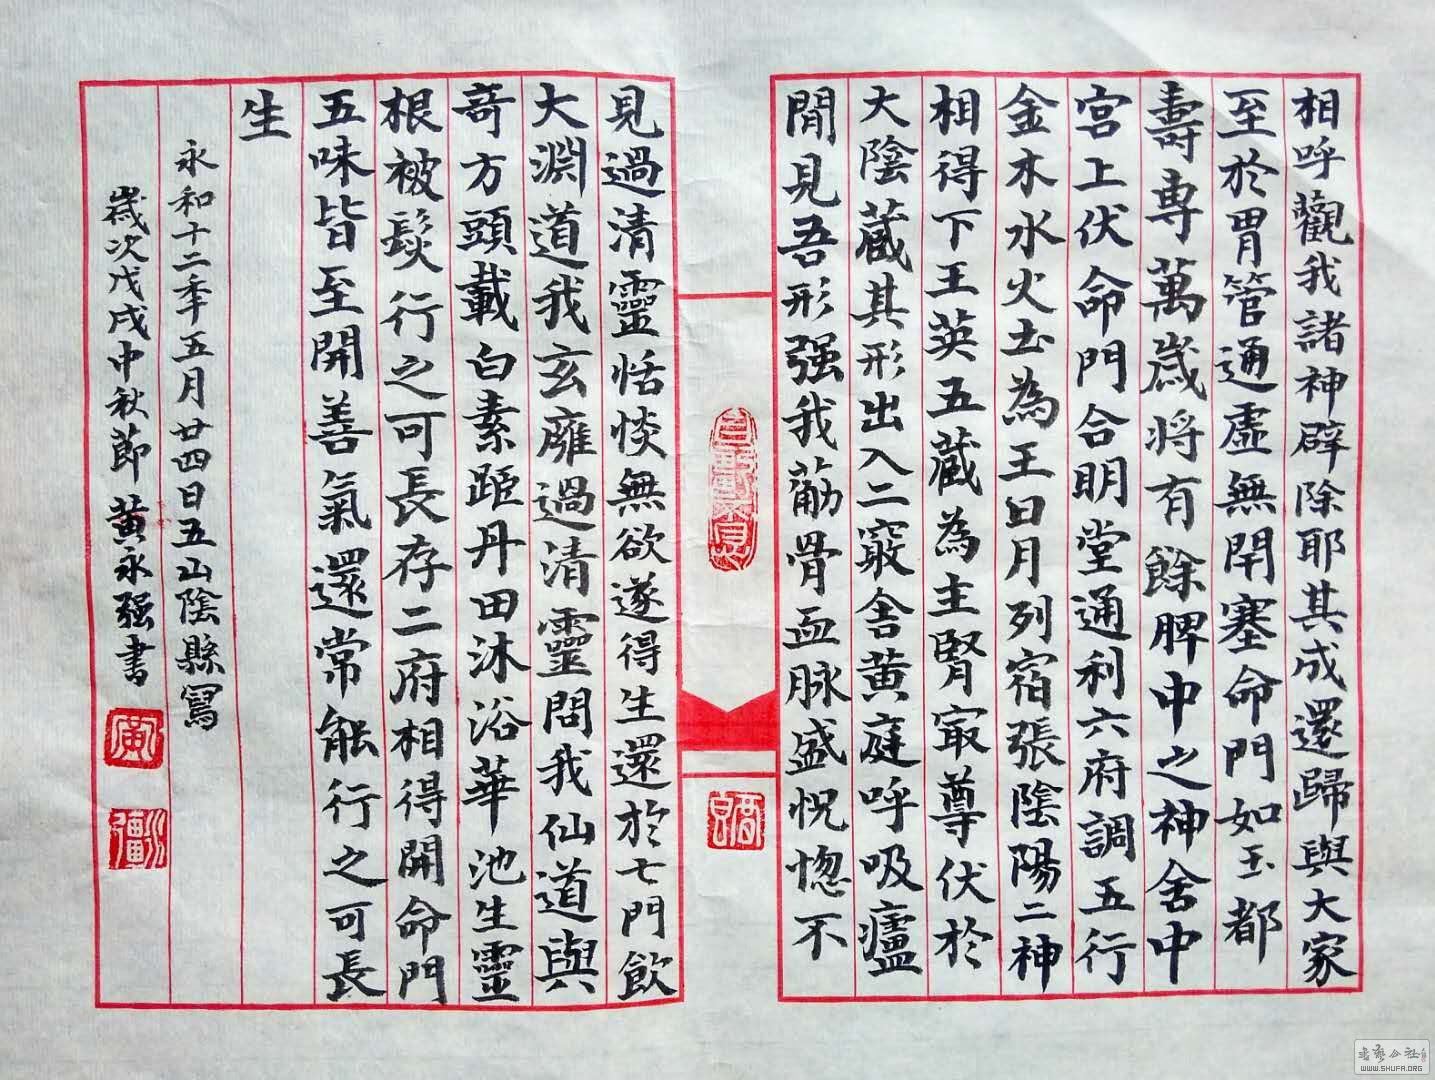 相呼觀我諸神辟除耶其成還歸與大家
至於胃管通虛無閇塞命門如玉都
壽專萬歲將有餘脾中之神舍中
宮上伏命門合明堂通利六府調五行
金木水火土為王日月列宿張陰陽二神
相得下王英五藏為主腎寂尊伏於
大陰藏其形出入二竅舍黄庭呼吸廬
間見吾形强我葪骨血脉盛怳惚不
見過清靈恬惔無欲遂得生還於七門飲
大淵道我玄廱過清靈問我仙道與
奇方頭載白素距丹田沐浴華池生靈
根被髮行之可長存二府相得開命門
五味皆至開善氣還常能行之可長
生
永和十二年五月廿四日五山陰縣寫
歲次戊戌中秋節黄永强書
書藝公社
WWW.SHUFA.ORG